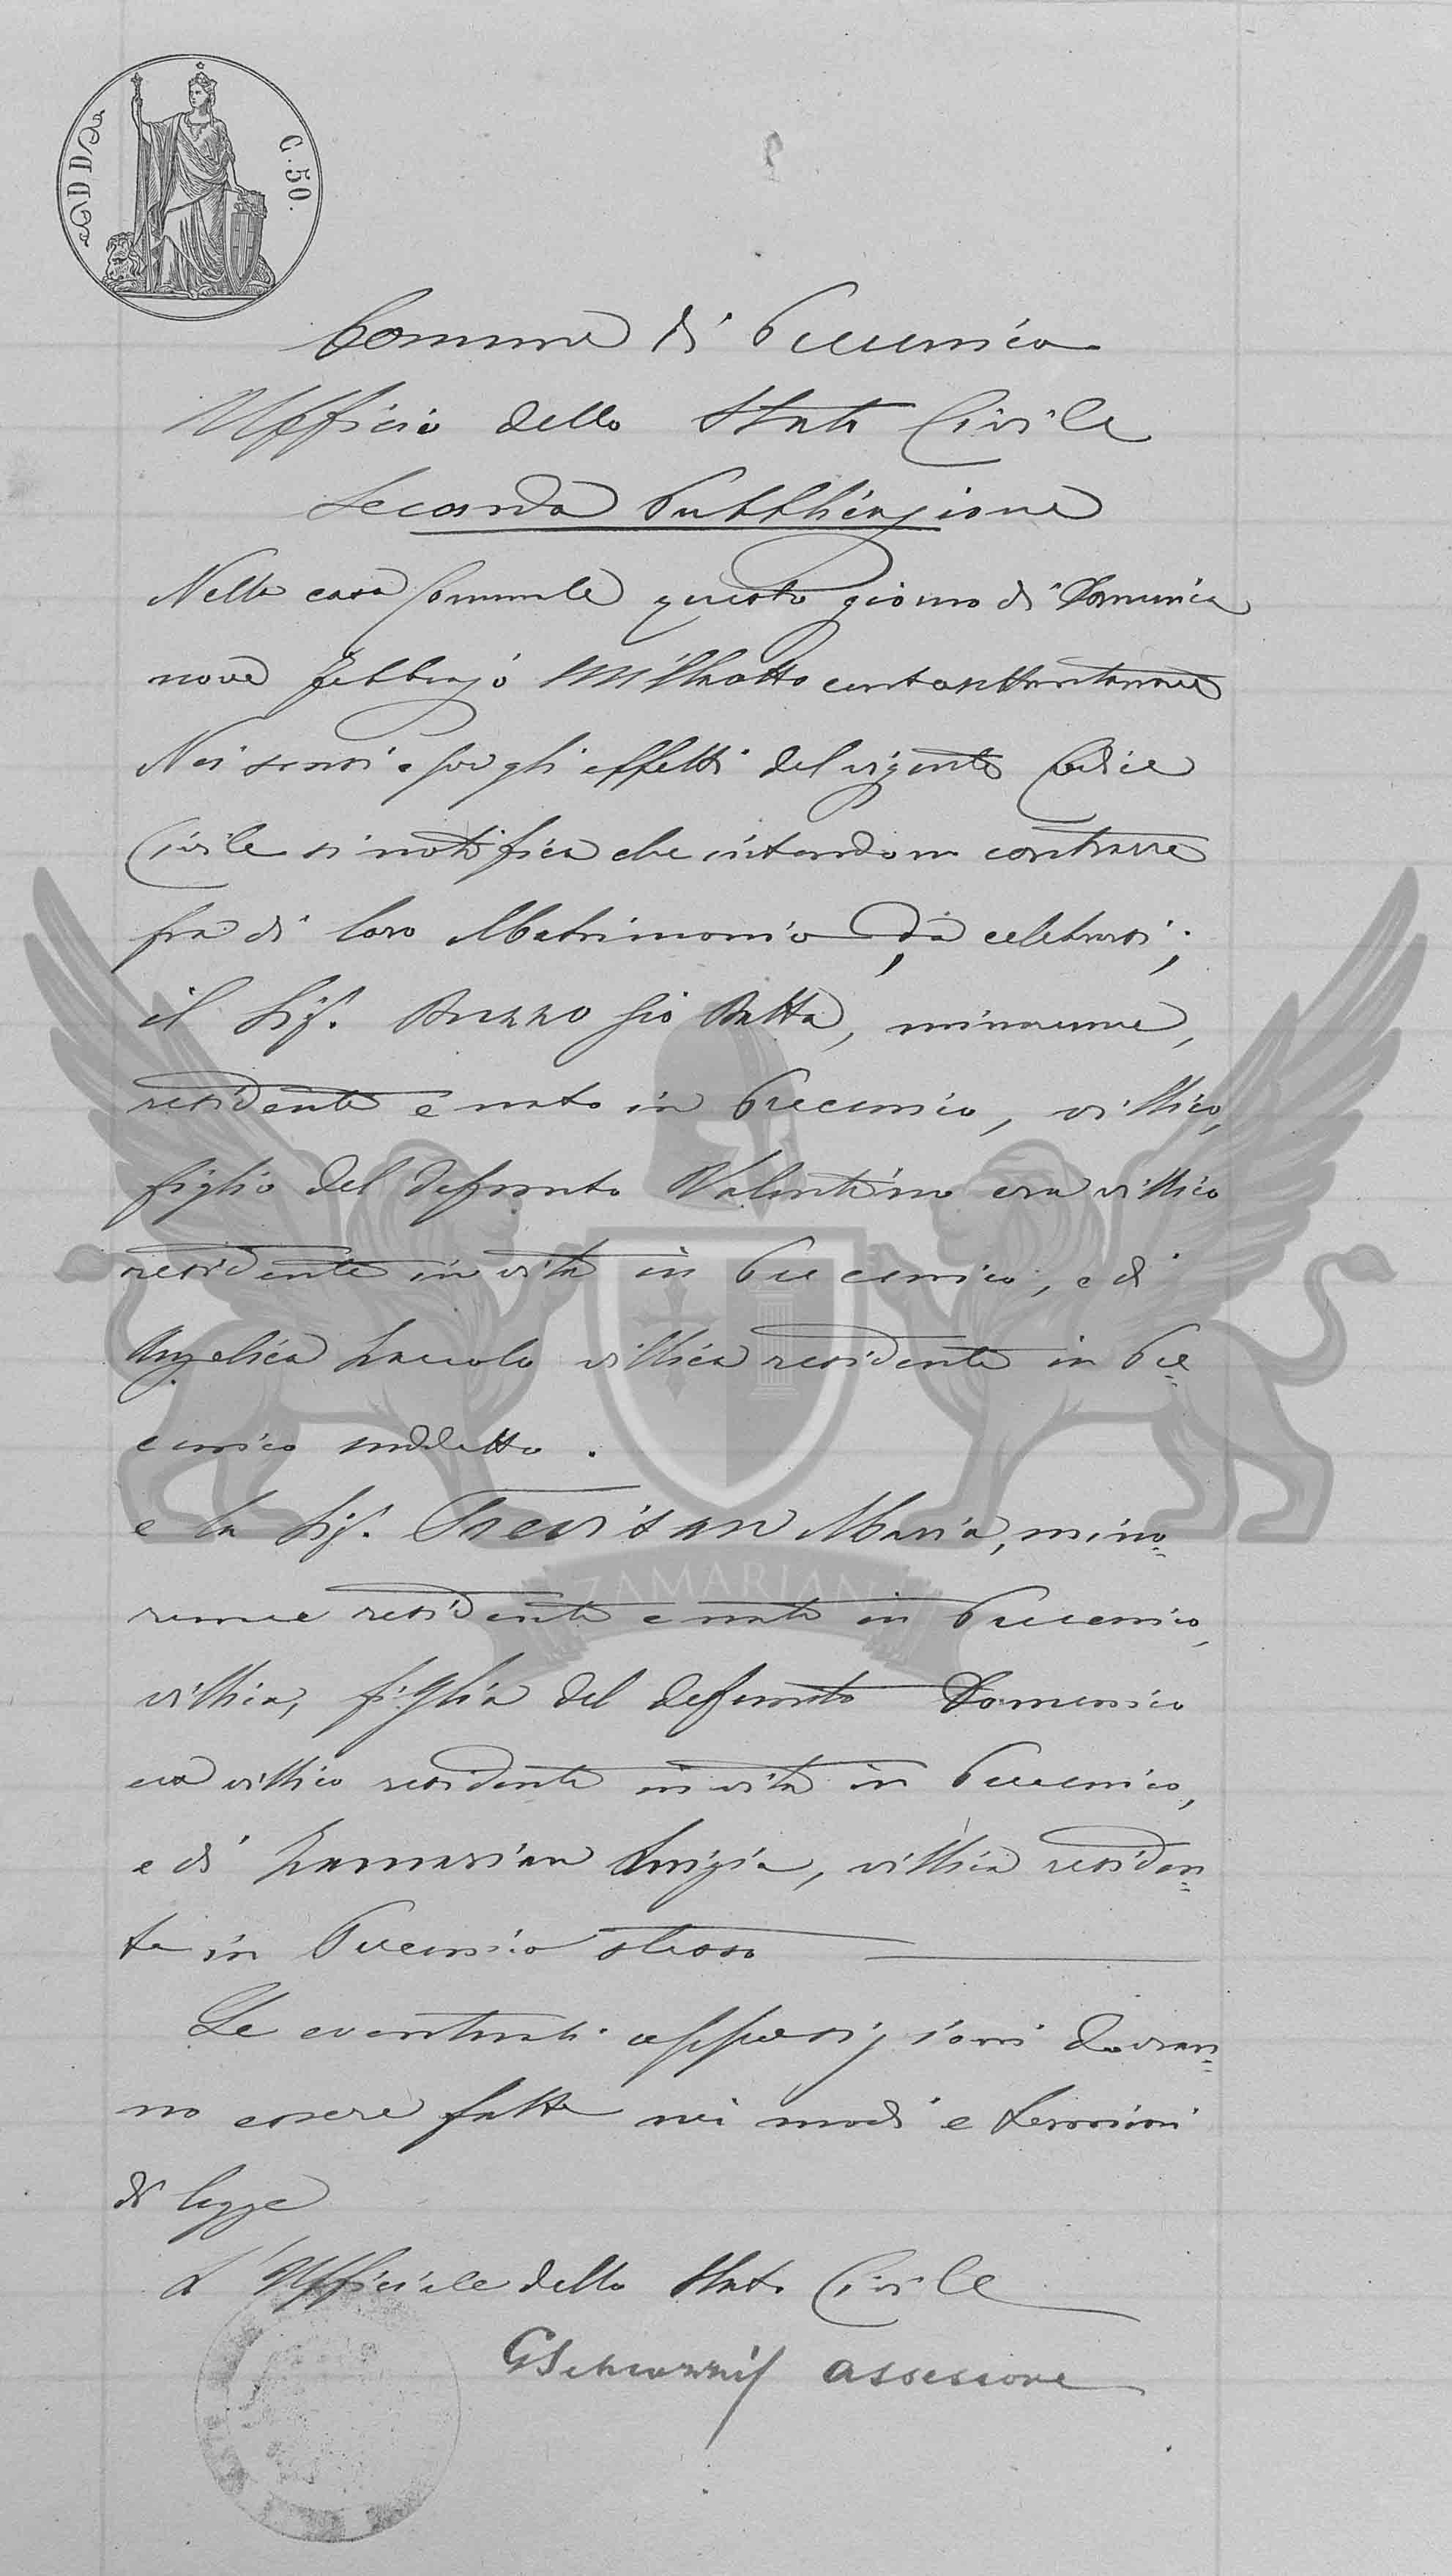 C. 50.
Comune di Precenico
Ufficio dello Stato Civile
Seconda Pubblicazione
Nella casa Comunale questo giorno di Domenica
nove Febbrajo Mille otto cento settantanove
Nei sensi e per gli effetti del vigente Codice
Civile si notifica che intendono contrarre
fra di loro Matrimonio da celebrarsi;
il Sig. Buzzo Gio Batta, minorenne,
residente e nato in Precenico, villico,
figlio del defunto Valentino era villico
residente in vita in Precenico, e di
Angelica villica residente in Pre=
cenico suddetto.
e la Sig. Trevisan Maria, mino=
renne residente e nata in Precenico,
villica, figlia del defunto Domenico
era villico residente in vita in Precenico,
e di Zamarian Luigia, villica residen=
te in Precenico stesso
Le eventuali opposizioni dovran=
no essere fatte nei modi e termini
di legge
L'Ufficiale dello Stato Civile
assessore
ZAMARIAN